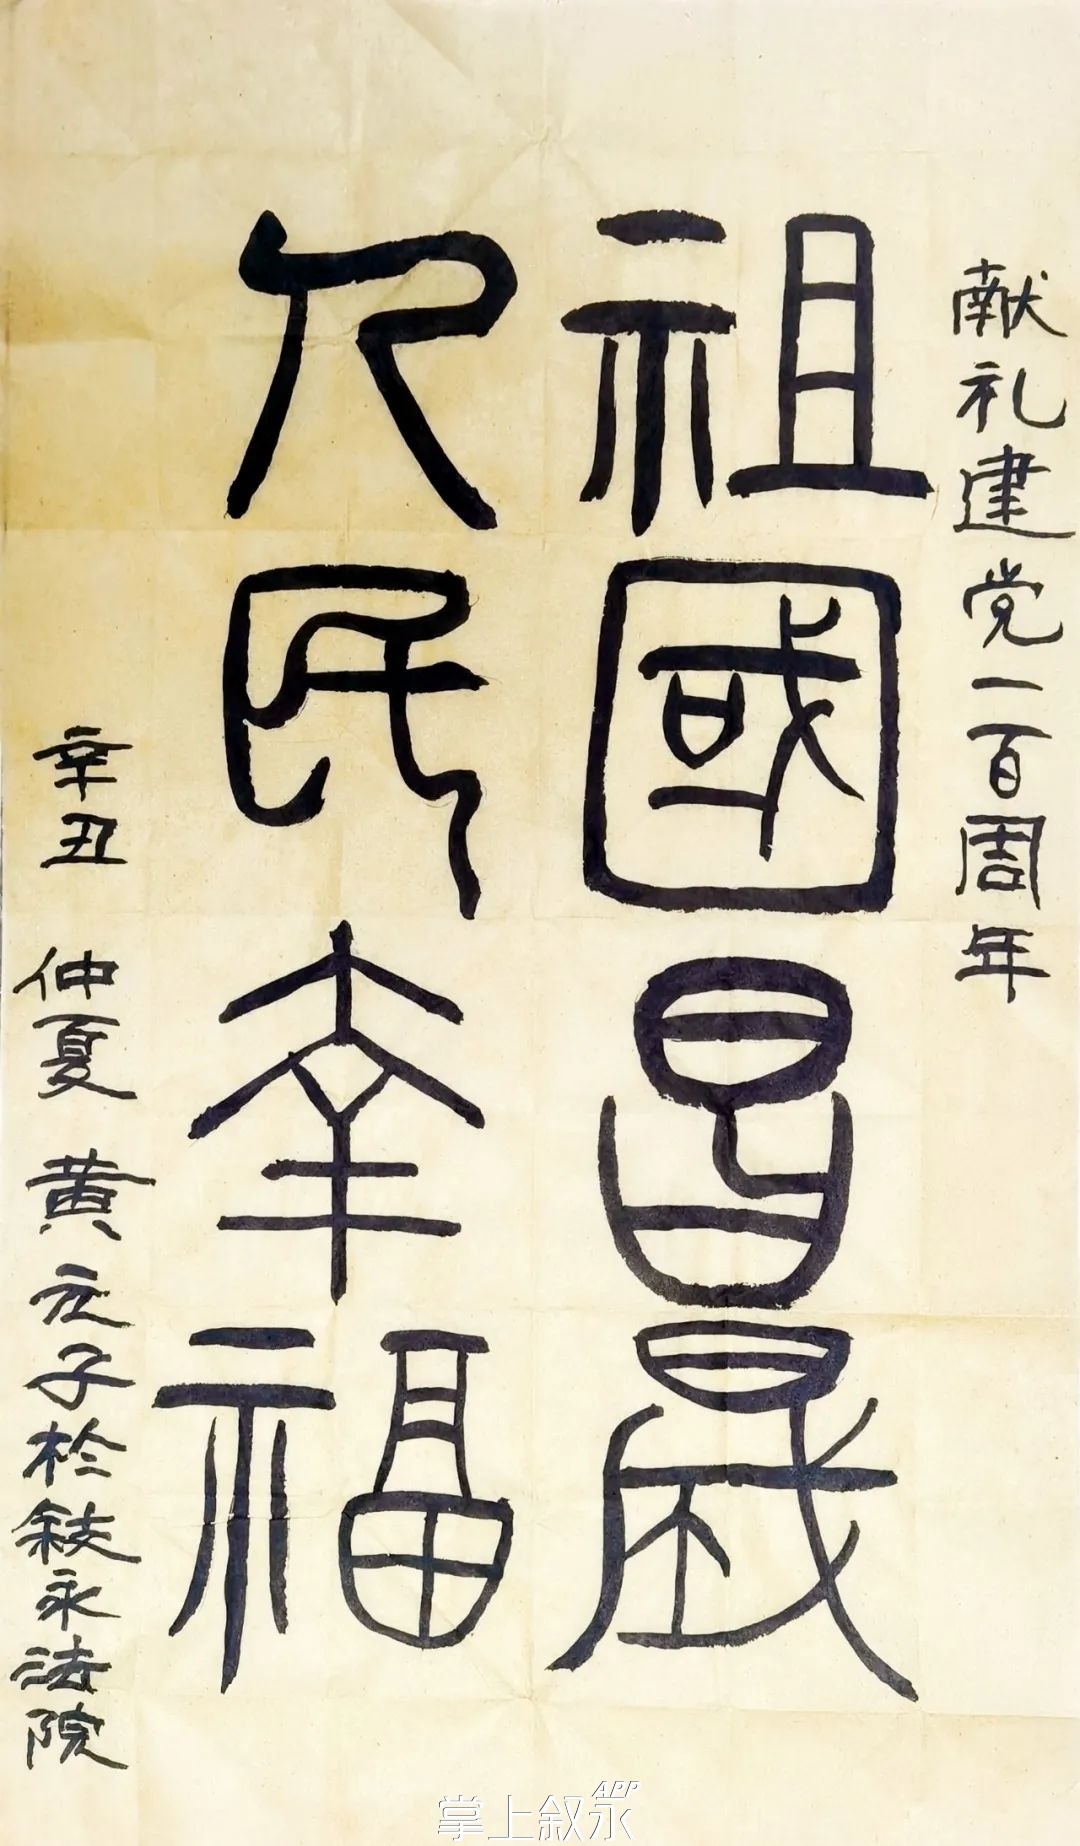 献礼建党一百周年
祖國昌晟
人民幸福
辛丑 仲夏 黄子於敍永法院
掌上叙永APP